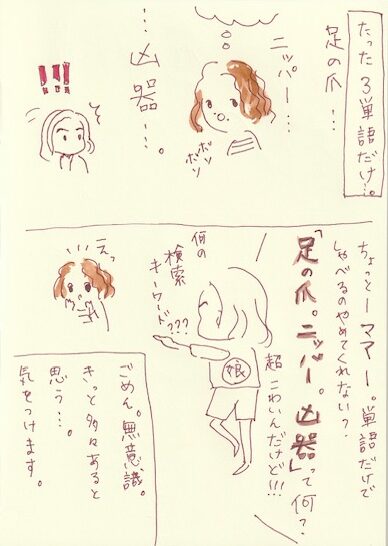 たった3単語だけ…。
足の爪…
ニッパー…
ボソ
ボソ
…凶器…。
!!!
ちょっとーママー。単語だけで
しゃべるのやめてくれない?
「足の爪。ニッパー。凶器」って何?
超こわいんだけど!!!
娘
何の
検索
キーワード
???
えっ
ごめん。無意識。
きっと多々あると
思う…。
気をつけます。